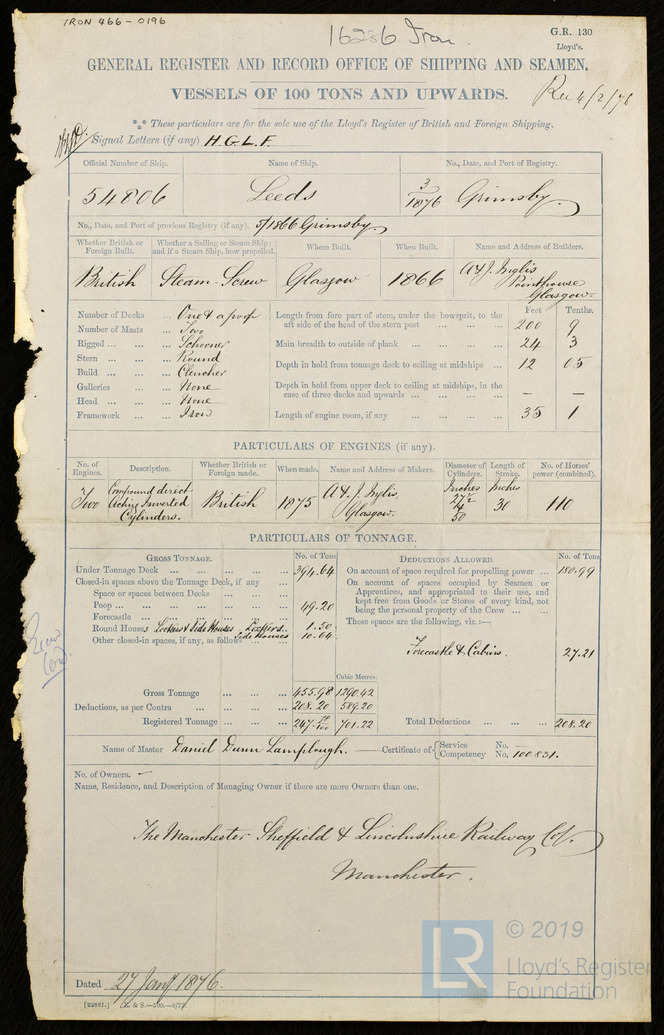 IRON 466-0196
16286 Iron.
G.R. 130
Lloyd's.
GENERAL REGISTER AND RECORD OFFICE OF SHIPPING AND SEAMEN,
VESSELS OF 100 TONS AND UPWARDS.
Rec 4/2/76
These particulars are for the sole use of the Lloyd's Register of British and Foreign Shipping.
Signal Letters (if any) H.G.L.F.
Official Number of Ship. Name of Ship. No., Date, and Port of Registry.
54806 Leeds 3/1876 Grimsby.
No., Date, and Port of previous Registry (if any). 5/1866 Grimsby.
Whether British or Foreign Built. Whether a Sailing or Steam Ship; and if a Steam Ship, how propelled. Where Built. When Built. Name and Address of Builders.
British Steam-Screw Glasgow 1866 A & J. Inglis Pointhouse Glasgow.
Feet Tenths.
Number of Decks ... One & a poop Length from fore part of stem, under the bowsprit, to the aft side of the head of the stern post ... ... ... 200 9
Number of Masts ... Two
Rigged ... ... ... Schooner Main breadth to outside of plank ... ... ... ... 24 3
Stern ... ... ... Round
Build ... ... ... Clencher Depth in hold from tonnage deck to ceiling at midships ... 12 05
Galleries ... ... None Depth in hold from upper deck to ceiling at midships, in the case of three decks and upwards ... ... ... ... — —
Head ... ... ... None
Framework ... ... Iron Length of engine room, if any ... ... ... ... 35 1
PARTICULARS OF ENGINES (if any).
No. of Engines. Description. Whether British or Foreign made. When made. Name and Address of Makers. Diameter of Cylinders. Length of Stroke. No. of Horses' power (combined).
Two Compound direct Acting Inverted Cylinders. British 1875 A & J. Inglis, Glasgow. Inches 27½ & 50 Inches 30 110
PARTICULARS OF TONNAGE.
GROSS TONNAGE. No. of Tons DEDUCTIONS ALLOWED. No. of Tons
Under Tonnage Deck ... ... ... ... ... 394.64 On account of space required for propelling power ... 180.99
Closed-in spaces above the Tonnage Deck, if any ...
Space or spaces between Decks ... ...
Poop ... ... ... ... ... ... 49.20
Forecastle ... ... ... ... ...
Round Houses Lockers & Side Houses Lockers. 1.50
Other closed-in spaces, if any, as follows Side Houses 10.64
On account of spaces occupied by Seamen or Apprentices, and appropriated to their use, and kept free from Goods or Stores of every kind, not being the personal property of the Crew ... ...
These spaces are the following, viz.:—
Forecastle & Cabins. 27.21
Cubic Metres.
Gross Tonnage ... ... ... 455.98 1290.42
Deductions, as per Contra ... ... ... 208.20 589.20
Registered Tonnage ... ... ... 247.78/100 701.22 Total Deductions ... ... ... 208.20
Name of Master Daniel Dunn Lamplough. Certificate of { Service No. — Competency No. 100.831.
No. of Owners. –
Name, Residence, and Description of Managing Owner if there are more Owners than one.
The Manchester Sheffield & Lincolnshire Railway Coy.
Manchester.
Dated 27 Jany 1876.
LR © 2019
Lloyd's Register
Foundation